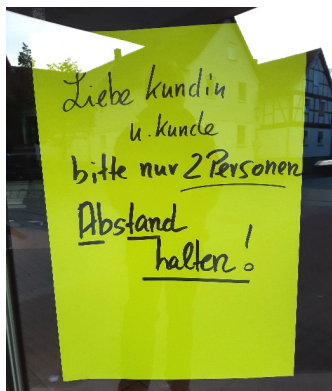 Liebe kundin
u. kunde
bitte nur 2 Personen
Abstand
halten!